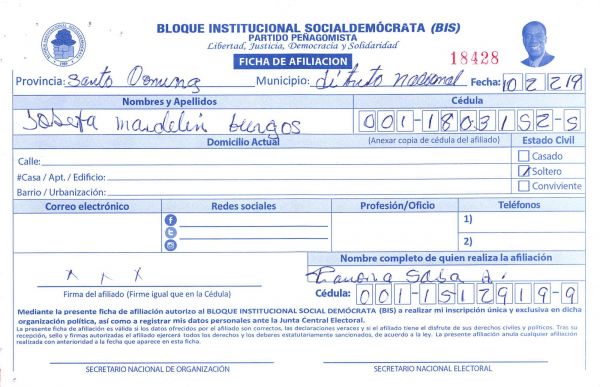 BLOQUE INSTITUCIONAL SOCIALDEMÓCRATA (BIS)
PARTIDO PEÑAGOMISTA
Libertad, Justicia, Democracia y Solidaridad
FICHA DE AFILIACION
18428
Provincia: Santo Domingo Municipio: distrito nacional Fecha: 10 2 219
Nombres y Apellidos Cédula
Josefa Mardelin burgos 001-1803152-5
Domicilio Actual (Anexar copia de cédula del afiliado) Estado Civil
Calle: Casado
#Casa / Apt. / Edificio: Soltero
Barrio / Urbanización: Conviviente
Correo electrónico Redes sociales Profesión/Oficio Teléfonos
1)
2)
Nombre completo de quien realiza la afiliación
x x x
Sosa
Firma del afiliado (Firme igual que en la Cédula) Cédula: 001-1512919-9
Mediante la presente ficha de afiliación autorizo al BLOQUE INSTITUCIONAL SOCIAL DEMÓCRATA (BIS) a realizar mi inscripción única y exclusiva en dicha
organización política, así como a registrar mis datos personales ante la Junta Central Electoral.
La presente ficha de afiliación es válida si los datos ofrecidos por el afiliado son correctos, las declaraciones veraces y si el afiliado tiene el disfrute de sus derechos civiles y políticos. Tras su
recepción, sello y firmas autorizadas el afiliado ejercerá todos los derechos y los deberes estatutariamente sancionados, de acuerdo a la ley. La presente afiliación anula cualquier afiliación
realizada con anterioridad a la fecha que aparece en esta ficha.
SECRETARIO NACIONAL DE ORGANIZACIÓN SECRETARIO NACIONAL ELECTORAL